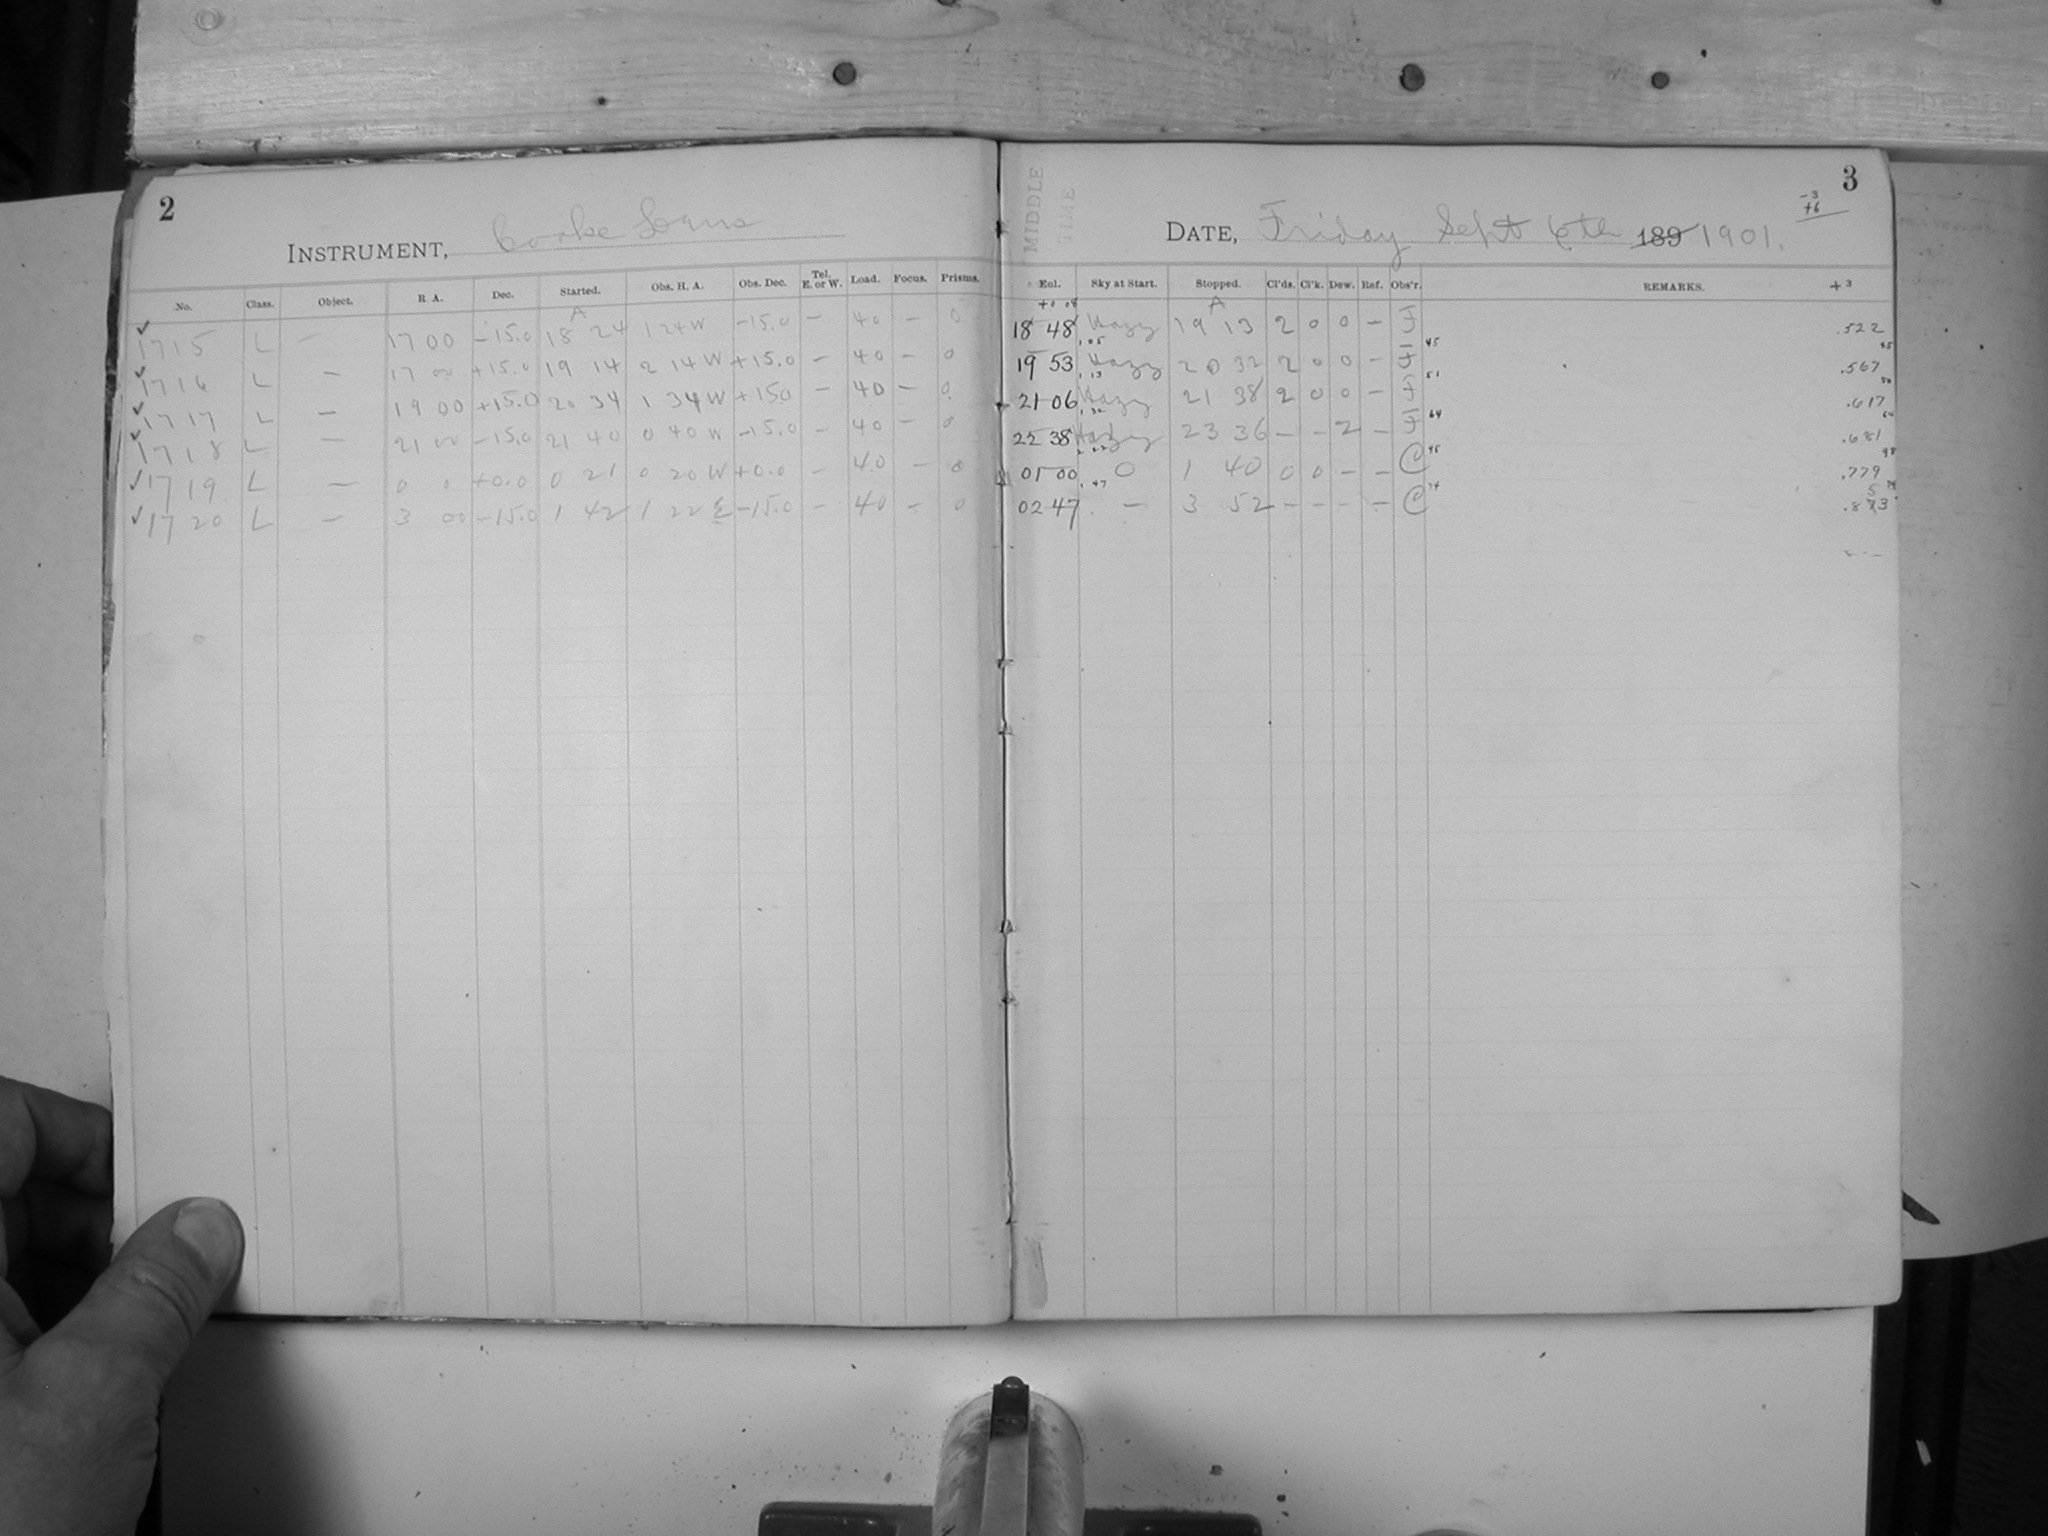 2
INSTRUMENT, Cooke Lens
No. Class. Object. R. A. Dec. Started. Obs. H. A. Obs. Dec. Tel. E. or W. Load. Focus. Prisms.
A
1715 L — 17 00 −15.0 18 24 1 24 W −15.0 — 40 — 0
1716 L — 17 00 +15.0 19 14 2 14 W +15.0 — 40 — 0
1717 L — 19 00 +15.0 20 34 1 34 W +15.0 — 40 — 0
1718 L — 21 00 −15.0 21 40 0 40 W −15.0 — 40 — 0
1719 L — 0 0 +0.0 0 21 0 20 W +0.0 — 40 — 0
1720 L — 3 00 −15.0 1 42 1 22 E −15.0 — 40 — 0
3
MIDDLE TIME
−3
+6
DATE, Friday Sept 6th 189 1901.
Sky at Start. Stopped. Cl'ds. Cl'k. Dew. Ref. Obs'r. REMARKS. +3
+0 08 A
18 48 Hazy 19 13 2 0 0 — F .522
1.05 45 45
19 53 Hazy 20 32 2 0 0 — F .567
1.13 51 50
21 06 Hazy 21 38 2 0 0 — F .617
1.32 64 64
22 38 Hazy 23 36 — — 2 — F .681
2 22 98 98
01 00 0 1 40 0 0 — — C .779
1.47 74 74
02 47 — 3 52 — — — — C .853